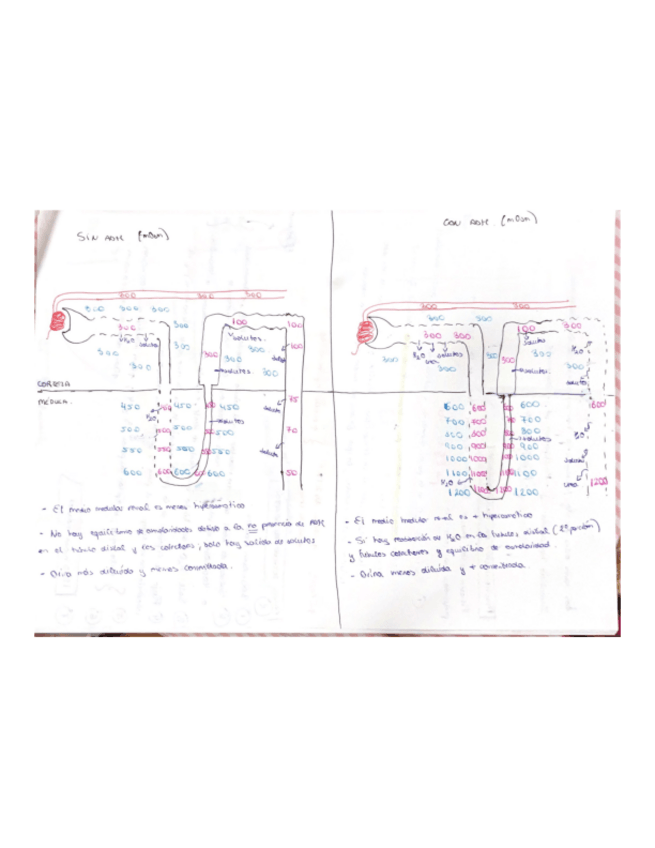 SIN ADH (mOsm)
CON ADH (mOsm)
300 300 300
300 300 300
300
H₂O solutos
300
300
300
300
100
solutos
300
300
300
solutos
300
100
100
CORTEZA
MEDULA
450 450 450
H₂O
500 500 500
solutos
550 550 550
600 600 600 600 600
75
70
50
300 700
300 300
300 300
H₂O solutos
300
300
300
100 300
soluto
300
300
solutos
H₂O
300
600 600 600
600
700 700 700
800 800
solutos
900 900 900
1000 1000 1000
1100 1100 1100
H₂O
1200 1200
1200
- El medio medular renal es menos hipertonico
- No hay equilibrio de osmolaridades debido a la no presencia de ADH
en el túbulo distal y los colectores, solo hay salida de solutos
- Orina más diluida y menos concentrada.
- El medio medular renal es + hipertonico
- Si hay reabsorción de H₂O en los túbulos distal (2ª porción)
y túbulos colectores y equilibrio de osmolaridad.
- Orina menos diluida y + concentrada